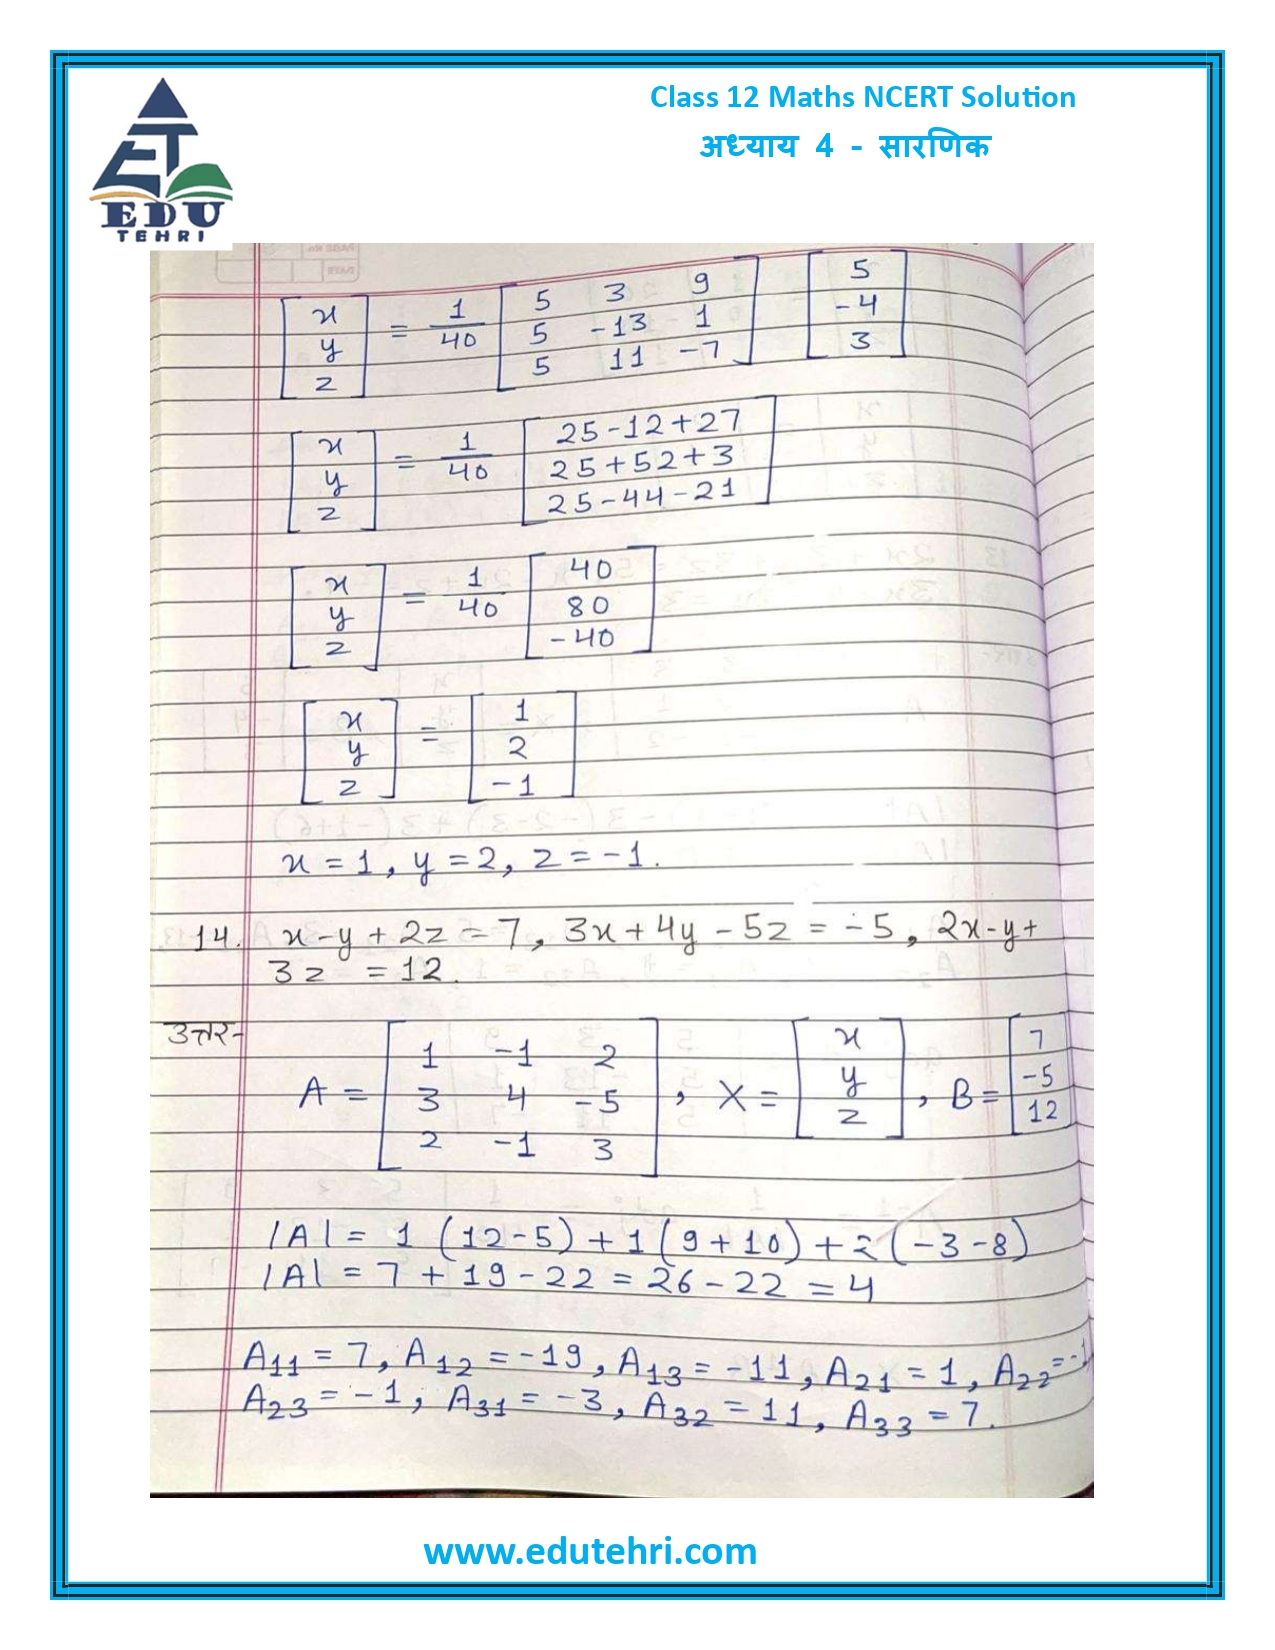 Class 12 Maths NCERT Solution
अध्याय 4 - सारणिक
EDU
TEHRI
[x y z] = 1/40 [5 3 9; 5 -13 1; 5 11 -7] [5; -4; 3]
[x y z] = 1/40 [25-12+27; 25+52+3; 25-44-21]
[x y z] = 1/40 [40; 80; -40]
[x y z] = [1; 2; -1]
x = 1, y = 2, z = -1.
14. x-y+2z = 7, 3x+4y-5z = -5, 2x-y+
3z = 12.
उत्तर-
A = [1 -1 2; 3 4 -5; 2 -1 3], X = [x; y; z], B = [7; -5; 12]
|A| = 1 (12-5)+1(9+10)+2(-3-8)
|A| = 7+19-22 = 26-22 = 4
A11 = 7, A12 = -19, A13 = -11, A21 = 1, A22 = -1
A23 = -1, A31 = -3, A32 = 11, A33 = 7.
www.edutehri.com